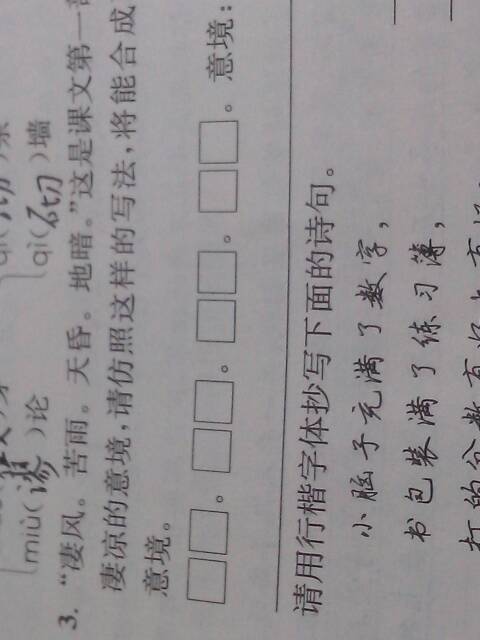 miù(谬)论 qì(砌)墙
3. “凄风。苦雨。天昏。地暗。”这是课文第一
凄凉的意境,请仿照这样的写法,将能合成
意境。
□□。□□。□□。□□。意境:
请用行楷字体抄写下面的诗句。
小脑子充满了数字,
书包装满了练习簿,